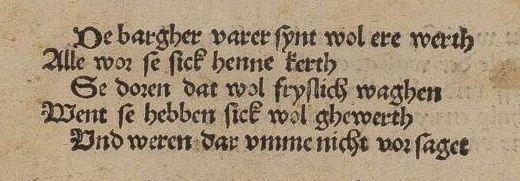 De bargher varer synt wol ere werth
Alle wor se sick henne kerth
Se doren dat wol fryslich waghen
Went se hebben sick wol ghewerth
Vnd weren dar vmme nicht vorsaget